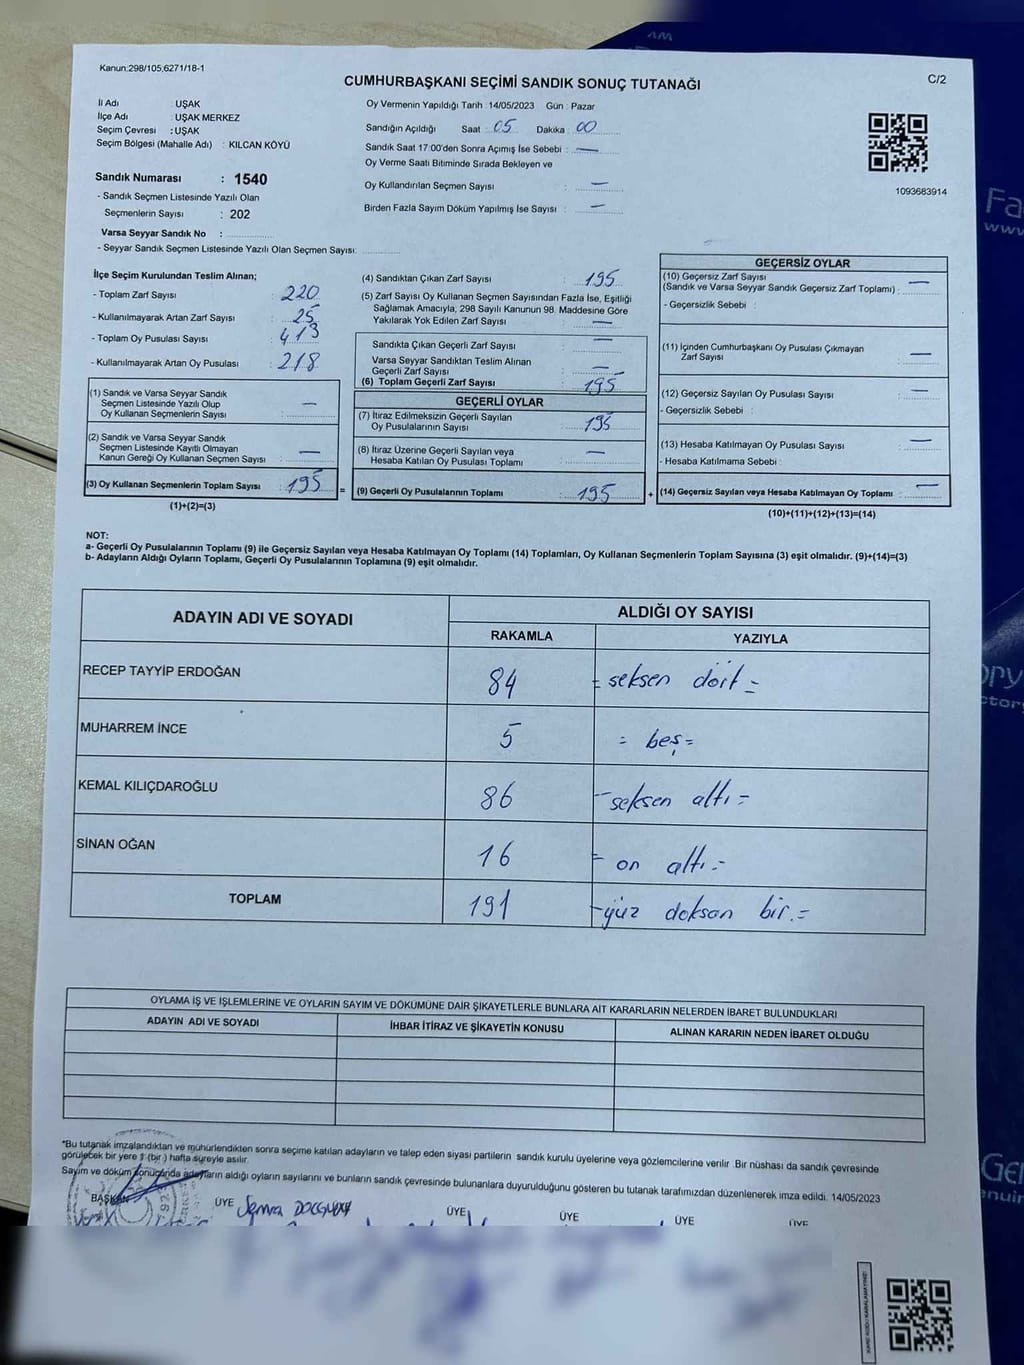 Kanun:298/105,6271/18-1
CUMHURBAŞKANI SEÇİMİ SANDIK SONUÇ TUTANAĞI
C/2
İl Adı : UŞAK
İlçe Adı : UŞAK MERKEZ
Seçim Çevresi : UŞAK
Seçim Bölgesi (Mahalle Adı) : KILCAN KÖYÜ
Sandık Numarası : 1540
- Sandık Seçmen Listesinde Yazılı Olan
Seçmenlerin Sayısı : 202
Varsa Seyyar Sandık No :
- Seyyar Sandık Seçmen Listesinde Yazılı Olan Seçmen Sayısı:
Oy Vermenin Yapıldığı Tarih : 14/05/2023 Gün : Pazar
Sandığın Açıldığı Saat : 05 Dakika : 00
Sandık Saat 17:00'den Sonra Açımış İse Sebebi : —
Oy Verme Saati Bitiminde Sırada Bekleyen ve
Oy Kullandırılan Seçmen Sayısı : —
Birden Fazla Sayım Döküm Yapılmış İse Sayısı : —
1093683914
İlçe Seçim Kurulundan Teslim Alınan;
- Toplam Zarf Sayısı : 220
- Kullanılmayarak Artan Zarf Sayısı : 25
- Toplam Oy Pusulası Sayısı : 413
- Kullanılmayarak Artan Oy Pusulası : 218
(1) Sandık ve Varsa Seyyar Sandık
Seçmen Listesinde Yazılı Olup
Oy Kullanan Seçmenlerin Sayısı : —
(2) Sandık ve Varsa Seyyar Sandık
Seçmen Listesinde Kayıtlı Olmayan
Kanun Gereği Oy Kullanan Seçmen Sayısı : —
(3) Oy Kullanan Seçmenlerin Toplam Sayısı : 195 =
(1)+(2)=(3)
(4) Sandıktan Çıkan Zarf Sayısı : 195
(5) Zarf Sayısı Oy Kullanan Seçmen Sayısından Fazla İse, Eşitliği
Sağlamak Amacıyla, 298 Sayılı Kanunun 98. Maddesine Göre
Yakılarak Yok Edilen Zarf Sayısı : —
Sandıkta Çıkan Geçerli Zarf Sayısı : —
Varsa Seyyar Sandıktan Teslim Alınan
Geçerli Zarf Sayısı : —
(6) Toplam Geçerli Zarf Sayısı : 195
GEÇERLİ OYLAR
(7) İtiraz Edilmeksizin Geçerli Sayılan
Oy Pusulalarının Sayısı : 195
(8) İtiraz Üzerine Geçerli Sayılan veya
Hesaba Katılan Oy Pusulası Toplamı : —
(9) Geçerli Oy Pusulalarının Toplamı : 195 +
GEÇERSİZ OYLAR
(10) Geçersiz Zarf Sayısı
(Sandık ve Varsa Seyyar Sandık Geçersiz Zarf Toplamı) : —
- Geçersizlik Sebebi :
(11) İçinden Cumhurbaşkanı Oy Pusulası Çıkmayan
Zarf Sayısı : —
(12) Geçersiz Sayılan Oy Pusulası Sayısı : —
- Geçersizlik Sebebi :
(13) Hesaba Katılmayan Oy Pusulası Sayısı : —
- Hesaba Katılmama Sebebi :
(14) Geçersiz Sayılan veya Hesaba Katılmayan Oy Toplamı : —
(10)+(11)+(12)+(13)=(14)
NOT:
a- Geçerli Oy Pusulalarının Toplamı (9) ile Geçersiz Sayılan veya Hesaba Katılmayan Oy Toplamı (14) Toplamları, Oy Kullanan Seçmenlerin Toplam Sayısına (3) eşit olmalıdır. (9)+(14)=(3)
b- Adayların Aldığı Oyların Toplamı, Geçerli Oy Pusulalarının Toplamına (9) eşit olmalıdır.
ADAYIN ADI VE SOYADI ALDIĞI OY SAYISI
RAKAMLA YAZIYLA
RECEP TAYYİP ERDOĞAN 84 = seksen dört =
MUHARREM İNCE 5 = beş =
KEMAL KILIÇDAROĞLU 86 - seksen altı =
SİNAN OĞAN 16 = on altı =
TOPLAM 191 - yüz doksan bir. =
OYLAMA İŞ VE İŞLEMLERİNE VE OYLARIN SAYIM VE DÖKÜMÜNE DAİR ŞİKAYETLERLE BUNLARA AİT KARARLARIN NELERDEN İBARET BULUNDUKLARI
ADAYIN ADI VE SOYADI İHBAR İTİRAZ VE ŞİKAYETİN KONUSU ALINAN KARARIN NEDEN İBARET OLDUĞU
*Bu tutanak imzalandıktan ve mühürlendikten sonra seçime katılan adayların ve talep eden siyasi partilerin sandık kurulu üyelerine veya gözlemcilerine verilir. Bir nüshası da sandık çevresinde
görülebilecek bir yere 1 (bir) hafta süreyle asılır.
Sayım ve döküm sonucunda adayların aldığı oyların sayılarını ve bunların sandık çevresinde bulunanlara duyurulduğunu gösteren bu tutanak tarafımızdan düzenlenerek imza edildi. 14/05/2023
BAŞKAN ÜYE Semra ÜYE ÜYE ÜYE ÜYE
Fa
www
ory
ctory
Ge
enuin